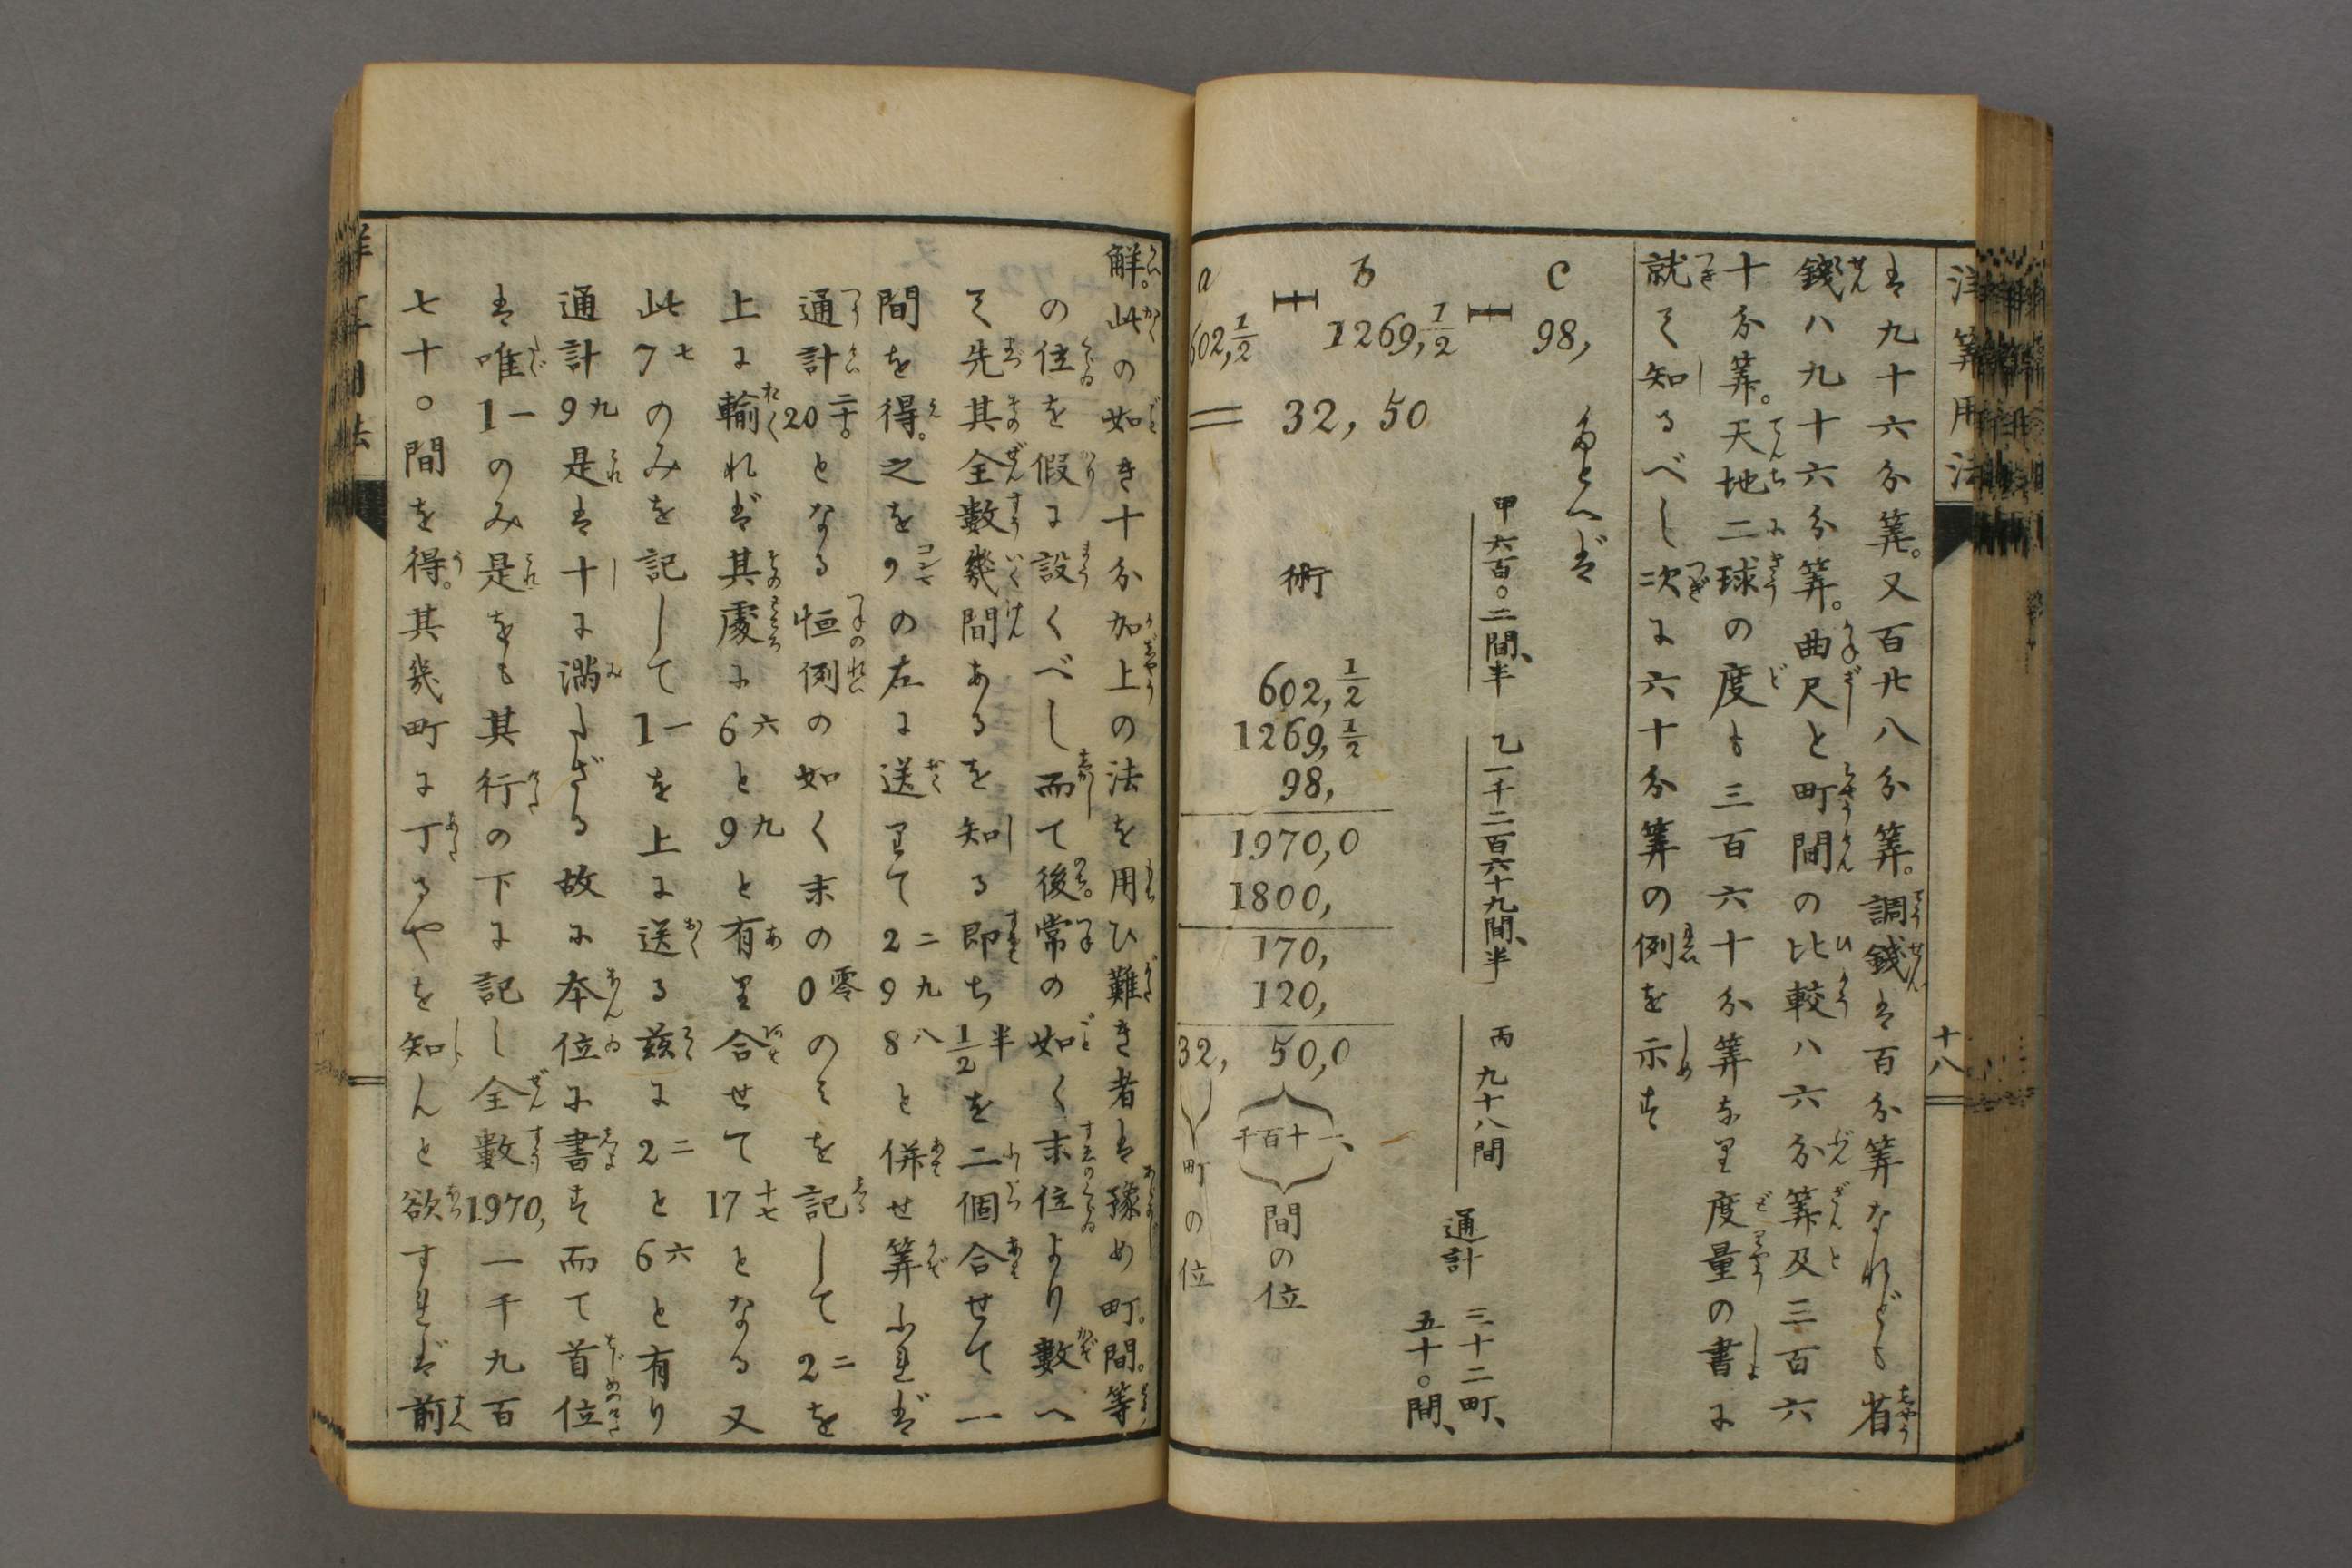 洋筭用法
十八
は九十六分筭。又百廿八分筭。調錢は百分筭なれども省
錢ハ九十六分筭。曲尺と町間の比較ハ六分筭及三百六
十分筭。天地二球の度も三百六十分筭なり度量の書に
就て知るべし次に六十分筭の例を示す
a b c
602,1/2 ＋ 1269,1/2 ＋ 98,
= 32, 50
たとへば
甲 六百〇二間、半
乙 一千二百六十九間、半
丙 九十八間
通計 三十二町、五十〇間、
術
602,1/2
1269,1/2
98,
1970,0
1800,
170,
120,
32, 50,0
千百十一、
間の位
町の位
解。此の如き十分加上の法を用ひ難き者は豫め町。間。等
の位を假に設くべし而て後。常の如く末位より數へ
て先其全數幾間あるを知る即ち1/2半を二個合せて一
間を得。之を9の左に送りて2二9九8八と併せ筭ふれば
通計20二十。となる恒例の如く末の0零のミを記して2二を
上に輸れば其處に6六と9九と有り合せて17十七となる又
此7七のみを記して1一を上に送る茲に2二と6六と有り
通計9九是は十に満たざる故に本位に書す而て首位
は唯1一のみ是をも其行の下に記し全數1970,一千九百
七十〇間を得。其幾町に丁るやを知んと欲すれば前